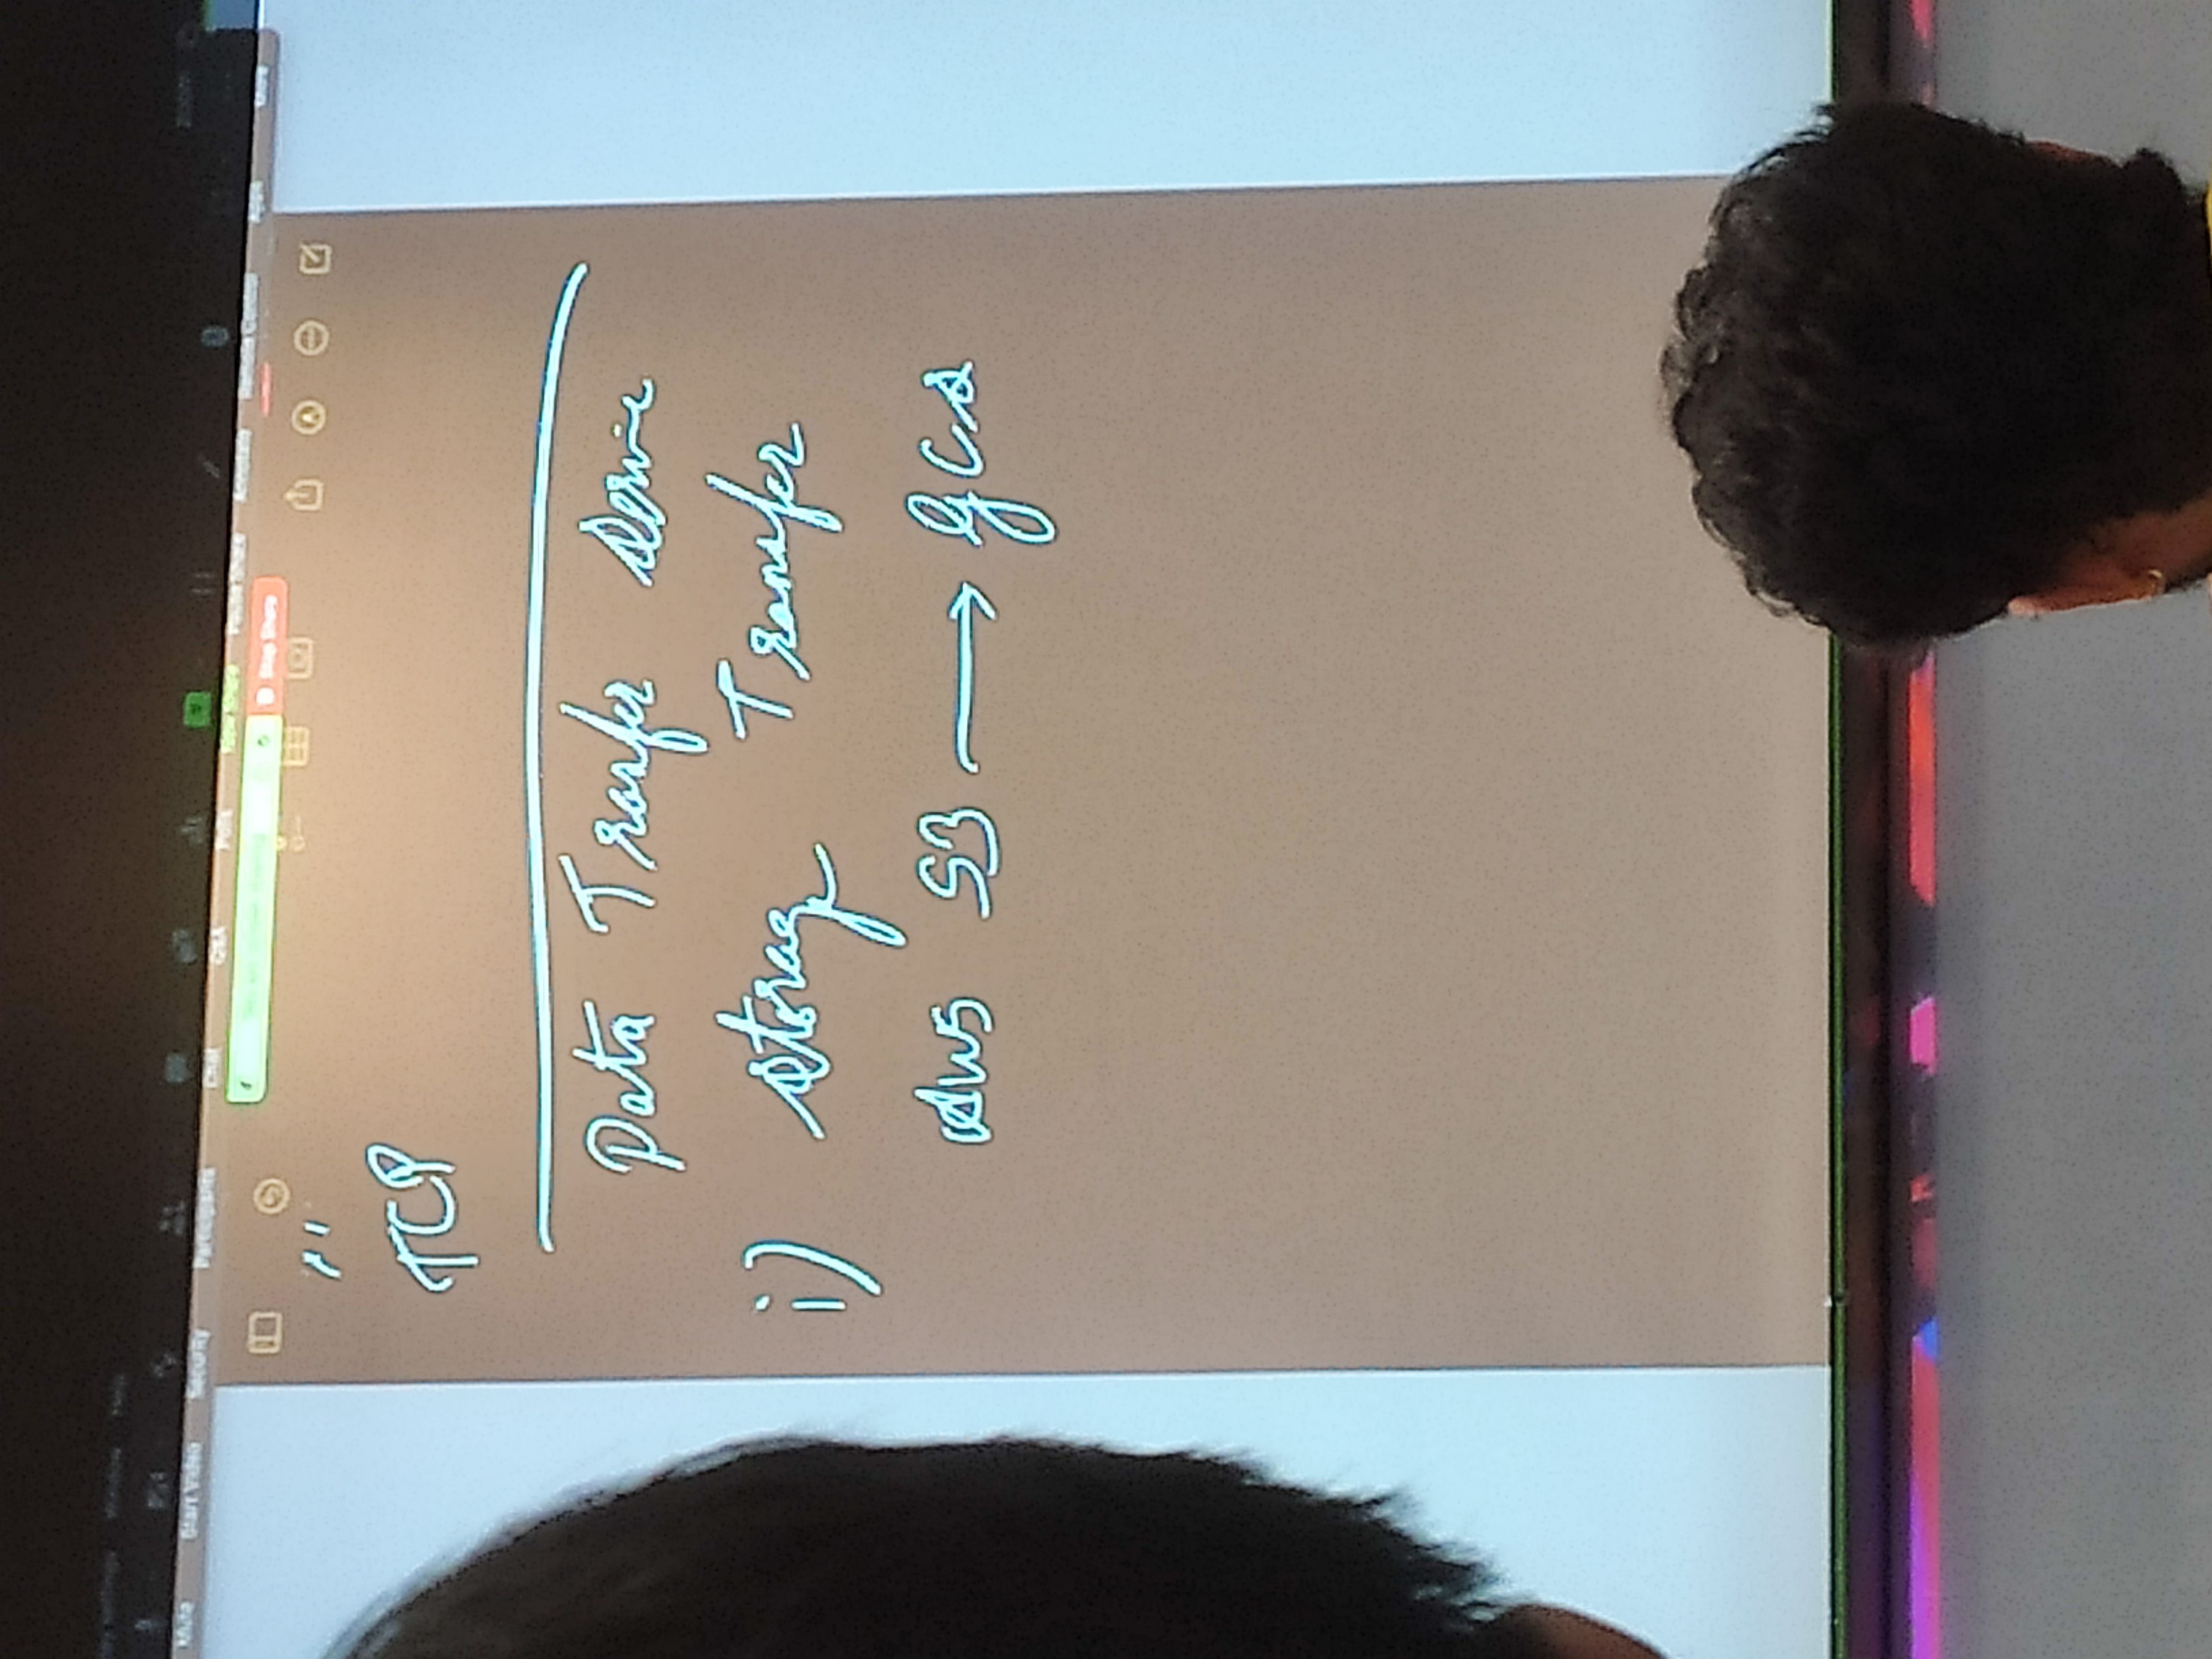 Mute Start Video Security Participants Chat Q&A Polls New Share Pause Share Annotate Remote Control Apps
Stop Share
TCP
Data Transfer Servic
i) Storag Transfer
AWS S3 → GCS